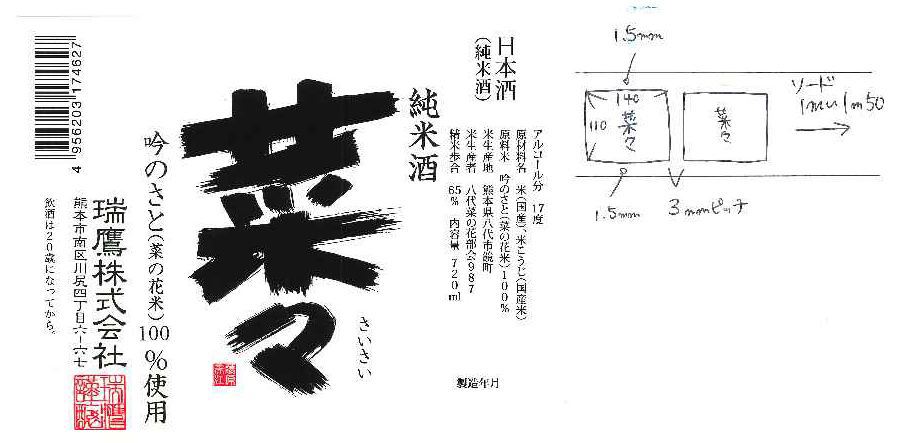 日本酒
(純米酒)
アルコール分 17度
原材料名 米(国産)、米こうじ(国産米)
原料米 吟のさと(菜の花米)100%
米生産地 熊本県八代市鏡町
米生産者 八代菜の花部会987
精米歩合 65% 内容量 720ml
製造年月
純米酒
菜々
さいさい
吟のさと(菜の花米)100%使用
瑞鷹株式会社
熊本市南区川尻四丁目六-六七
飲酒は20歳になってから。
4 956203 174627
1.5mm
140
110
菜々
菜々
1.5mm
3mmピッチ